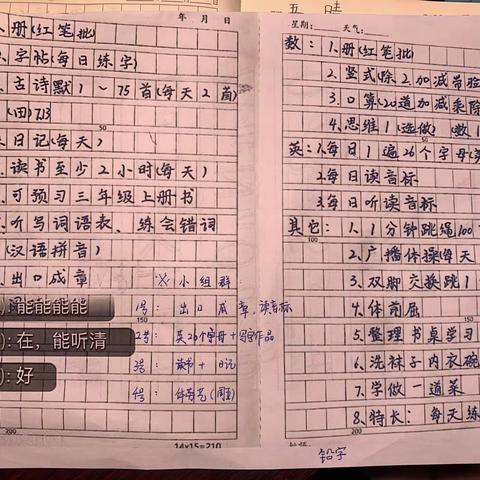 年 月 日
册(红笔批)
字帖(每日练字)
古诗默1～75首(每天2首)
(四)713
日记(每天)
读书至少2小时(每天)
可预习三年级上册书
听写词语表、练会错词
(汉语拼音)
出口成章
※小组群:
能能能能
): 在，能听清
): 好
1号: 出口成章,读音标
2号: 英26个字母+写字作品
3号: 读书+日记
4号: 体育艺(周五)
150
200
14×15=210
星期: 天气:
数: 1.册(红笔批)
2.竖式除2加减带验
3.口算(20道加减乘除
50
4.思维1(选做)(数1
英: 1.每日1遍26个字母(英
2.每日读音标
3.每日听读音标
其它: 1.1分钟跳绳100
100
2.广播体操(每天
3.双脚交换跳1
4.体前屈
150
5.整理书桌学习
6.洗袜子内衣碗
7.学做一道菜
8.特长: 每天练
200
铅字